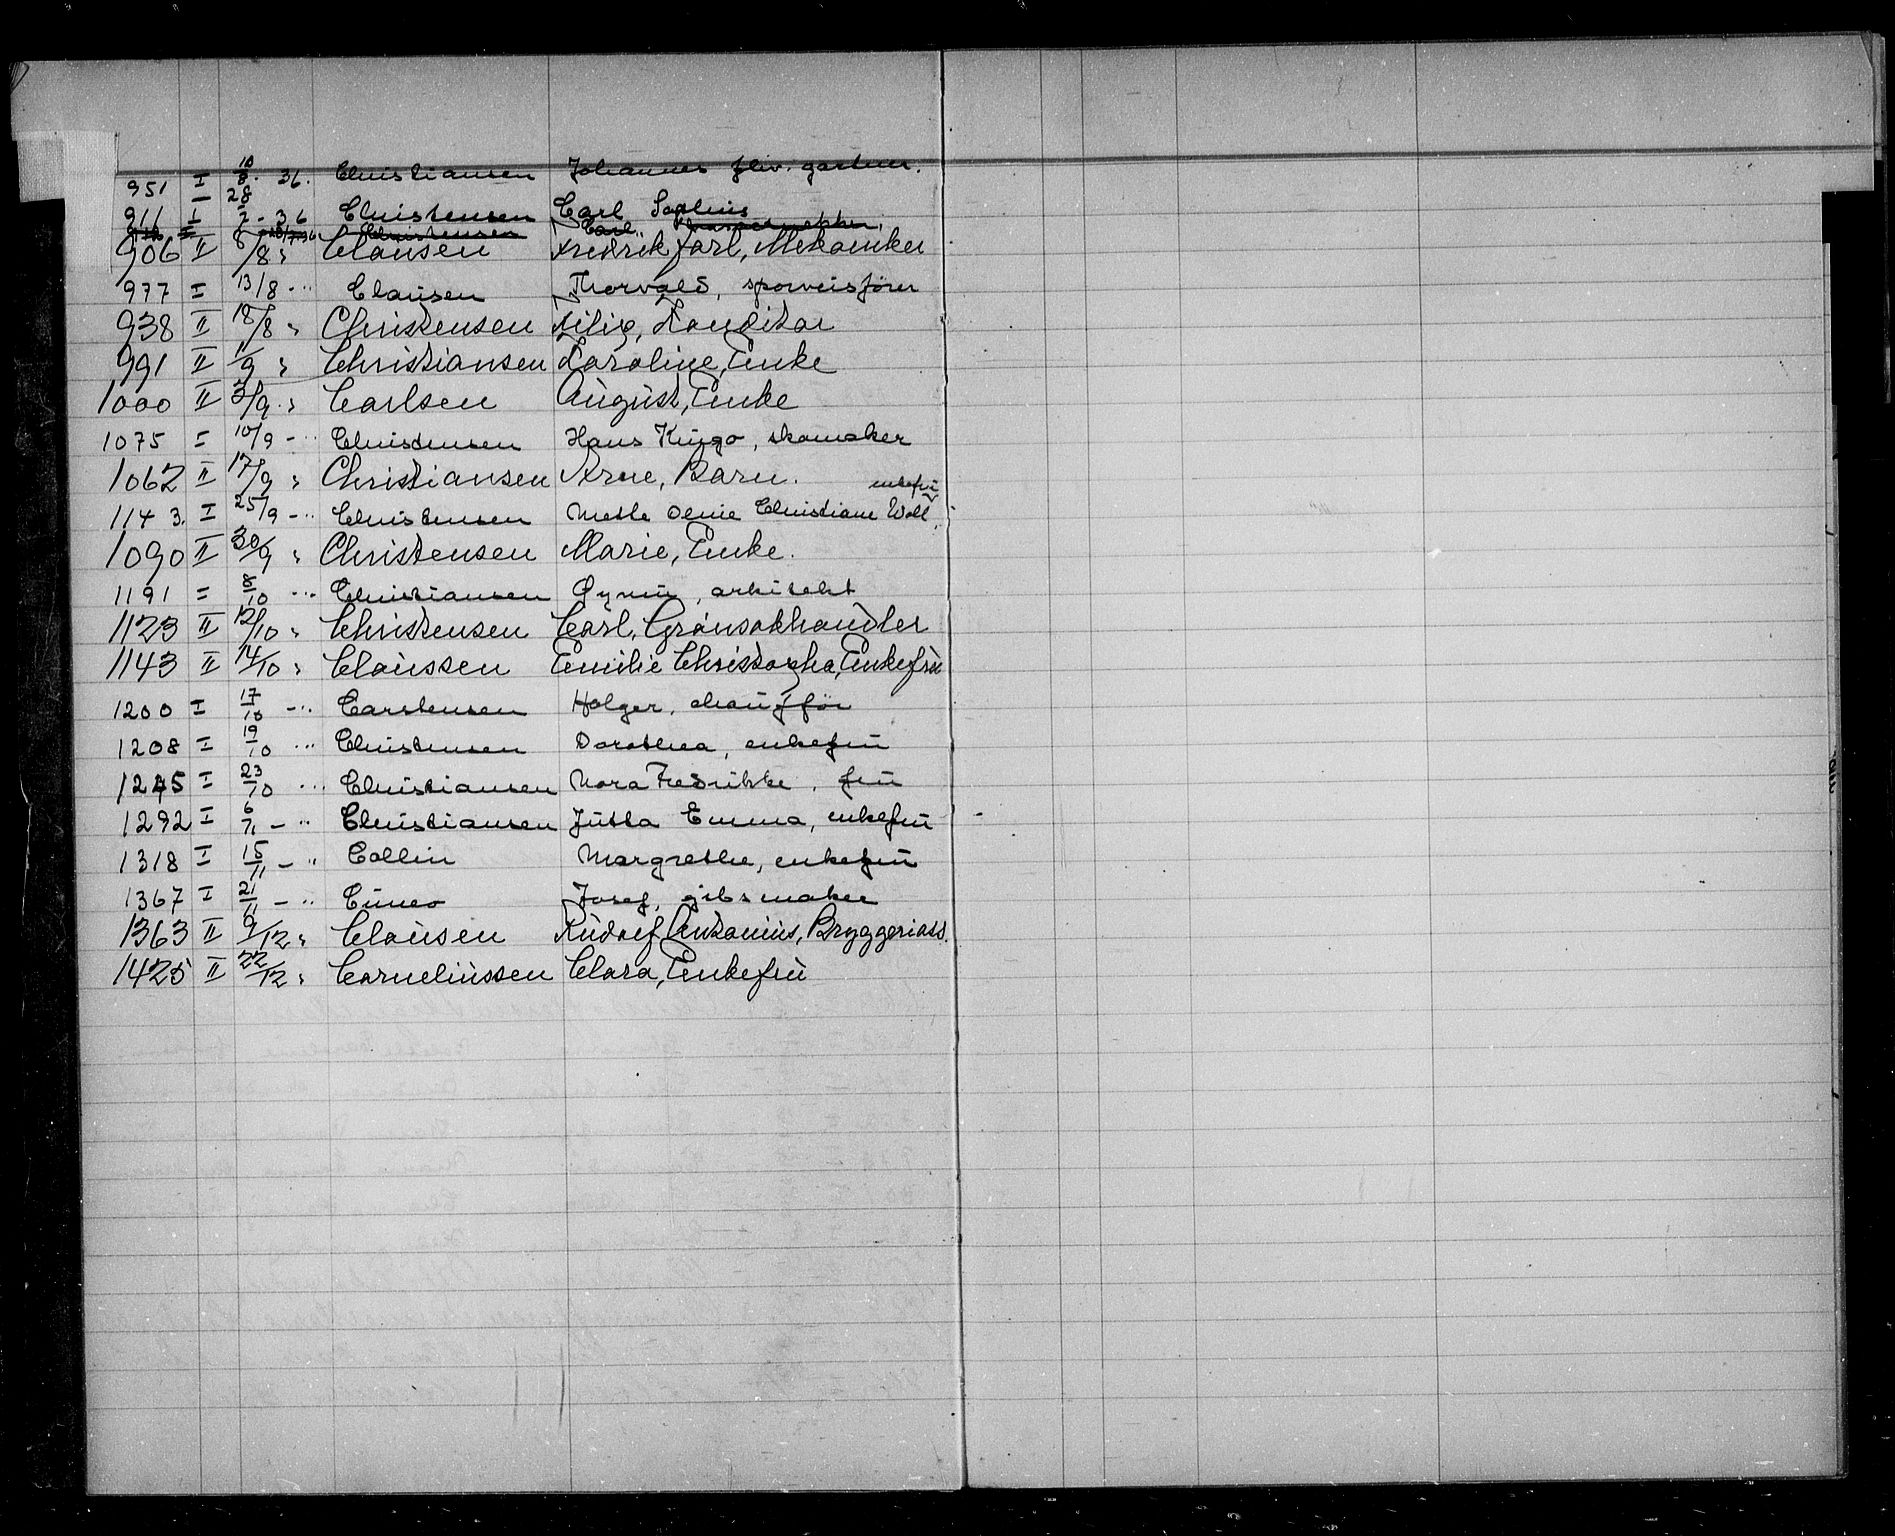 951 I 10/8. 36. Christiansen Johannes fhv. gartner.
911 I 28/7 - 36 Christensen Carl Sophus
Christensen Carl
906 II 6/8 " Clausen Fredrik Jarl, Mekaniker
977 I 13/8 - " Clausen Thorvald, sporveisfører
938 II 18/8 " Christensen Filip, Konditor
991 II 1/9 " Christiansen Karoline, Enke
1000 II 3/9 " Carlsen August, Enke
1075 I 10/9 - " Christensen Hans Kingo, skomaker
1062 II 17/9 " Christiansen Arne, Barn.
enkefrü
1143. I 25/9 - " Christensen Mette Olene Christiane Woll,
1090 II 30/9 " Christensen Marie, Enke.
1191 I 8/10 - " Christiansen arkitekt
1123 II 12/10 " Christensen Carl, Grønsakhandler
1143 II 14/10 " Claüssen Emilie Christopha, Enkefrü
1200 I 17/10 - " Carstensen Holger, chaufför
1208 I 19/10 " Christensen Dorothea, enkefrü
1245 I 23/10 " Christiansen Nora Fredrikke, frü
1292 I 6/11 - " Christiansen Jutta Emma, enkefrü
1318 I 15/11 - " Collin Margrethe, enkefrü
1367 I 21/11 - " Cüneo Josef, gibsmaker
1363 II 9/12 " Claüsen Rüdolf Antonius, Bryggeriass.
1425 II 22/12 " Corneliüssen Clara, Enkefrü